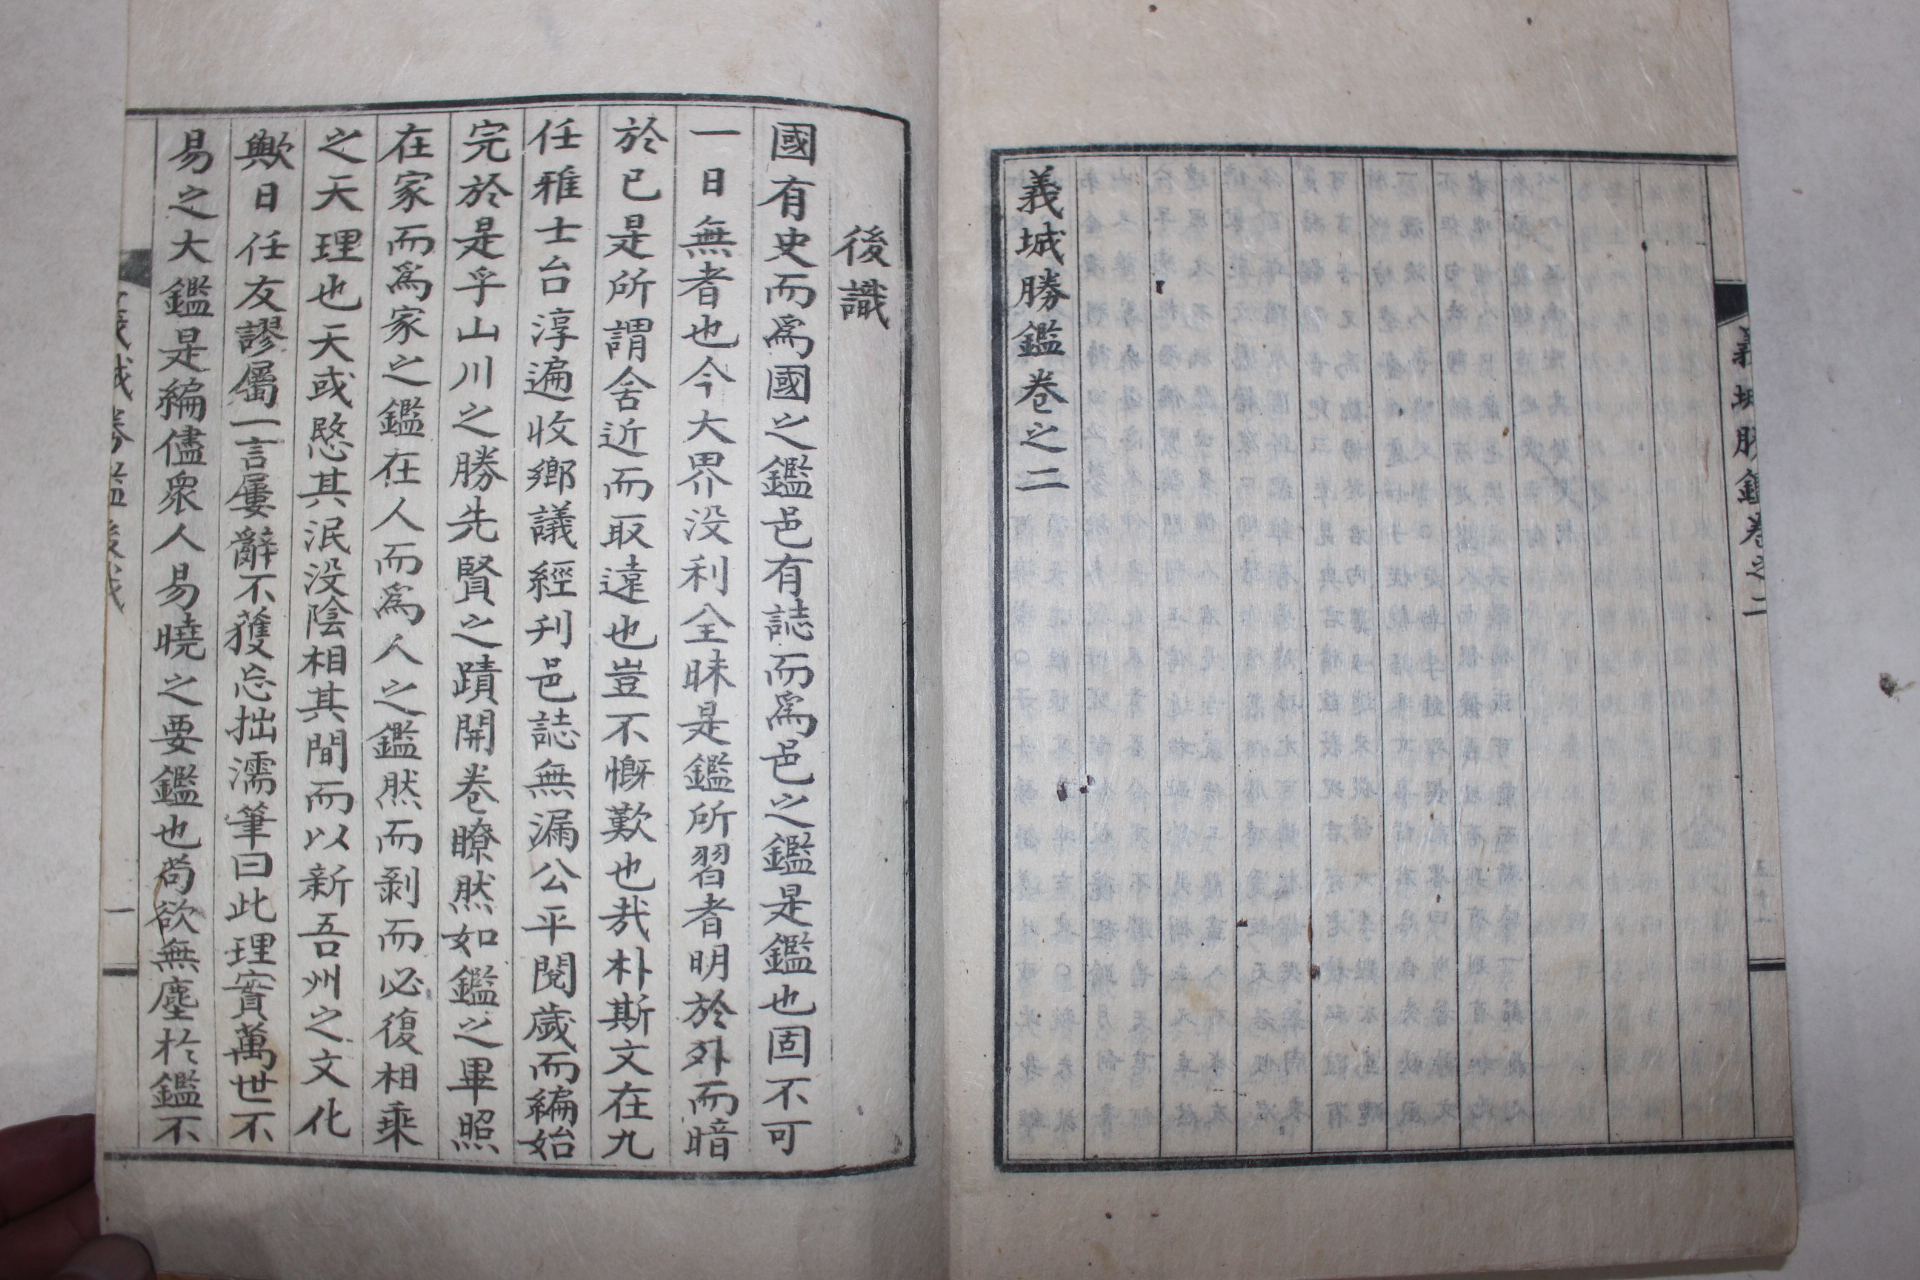 義城勝鑑卷之二
義城勝鑑卷之二
後識
國有史而爲國之鑑邑有誌而爲邑之鑑是鑑也固不可
一日無者也今大界没利全昧是鑑所習者明於外而暗
於已是所謂舍近而取遠也豈不慨歎也哉朴斯文在九
任雅士台淳遍收鄉議經刋邑誌無漏公平閱歲而編始
完於是乎山川之勝先賢之蹟開卷瞭然如鑑之畢照
在家而爲家之鑑在人而爲人之鑑然而剥而必復相乘
之天理也天或愍其泯没陰相其間而以新吾州之文化
歟日任友謬屬一言屢辭不獲忘拙濡筆曰此理實萬世不
易之大鑑是編儘衆人易曉之要鑑也苟欲無塵於鑑不
義城勝鑑後識
一